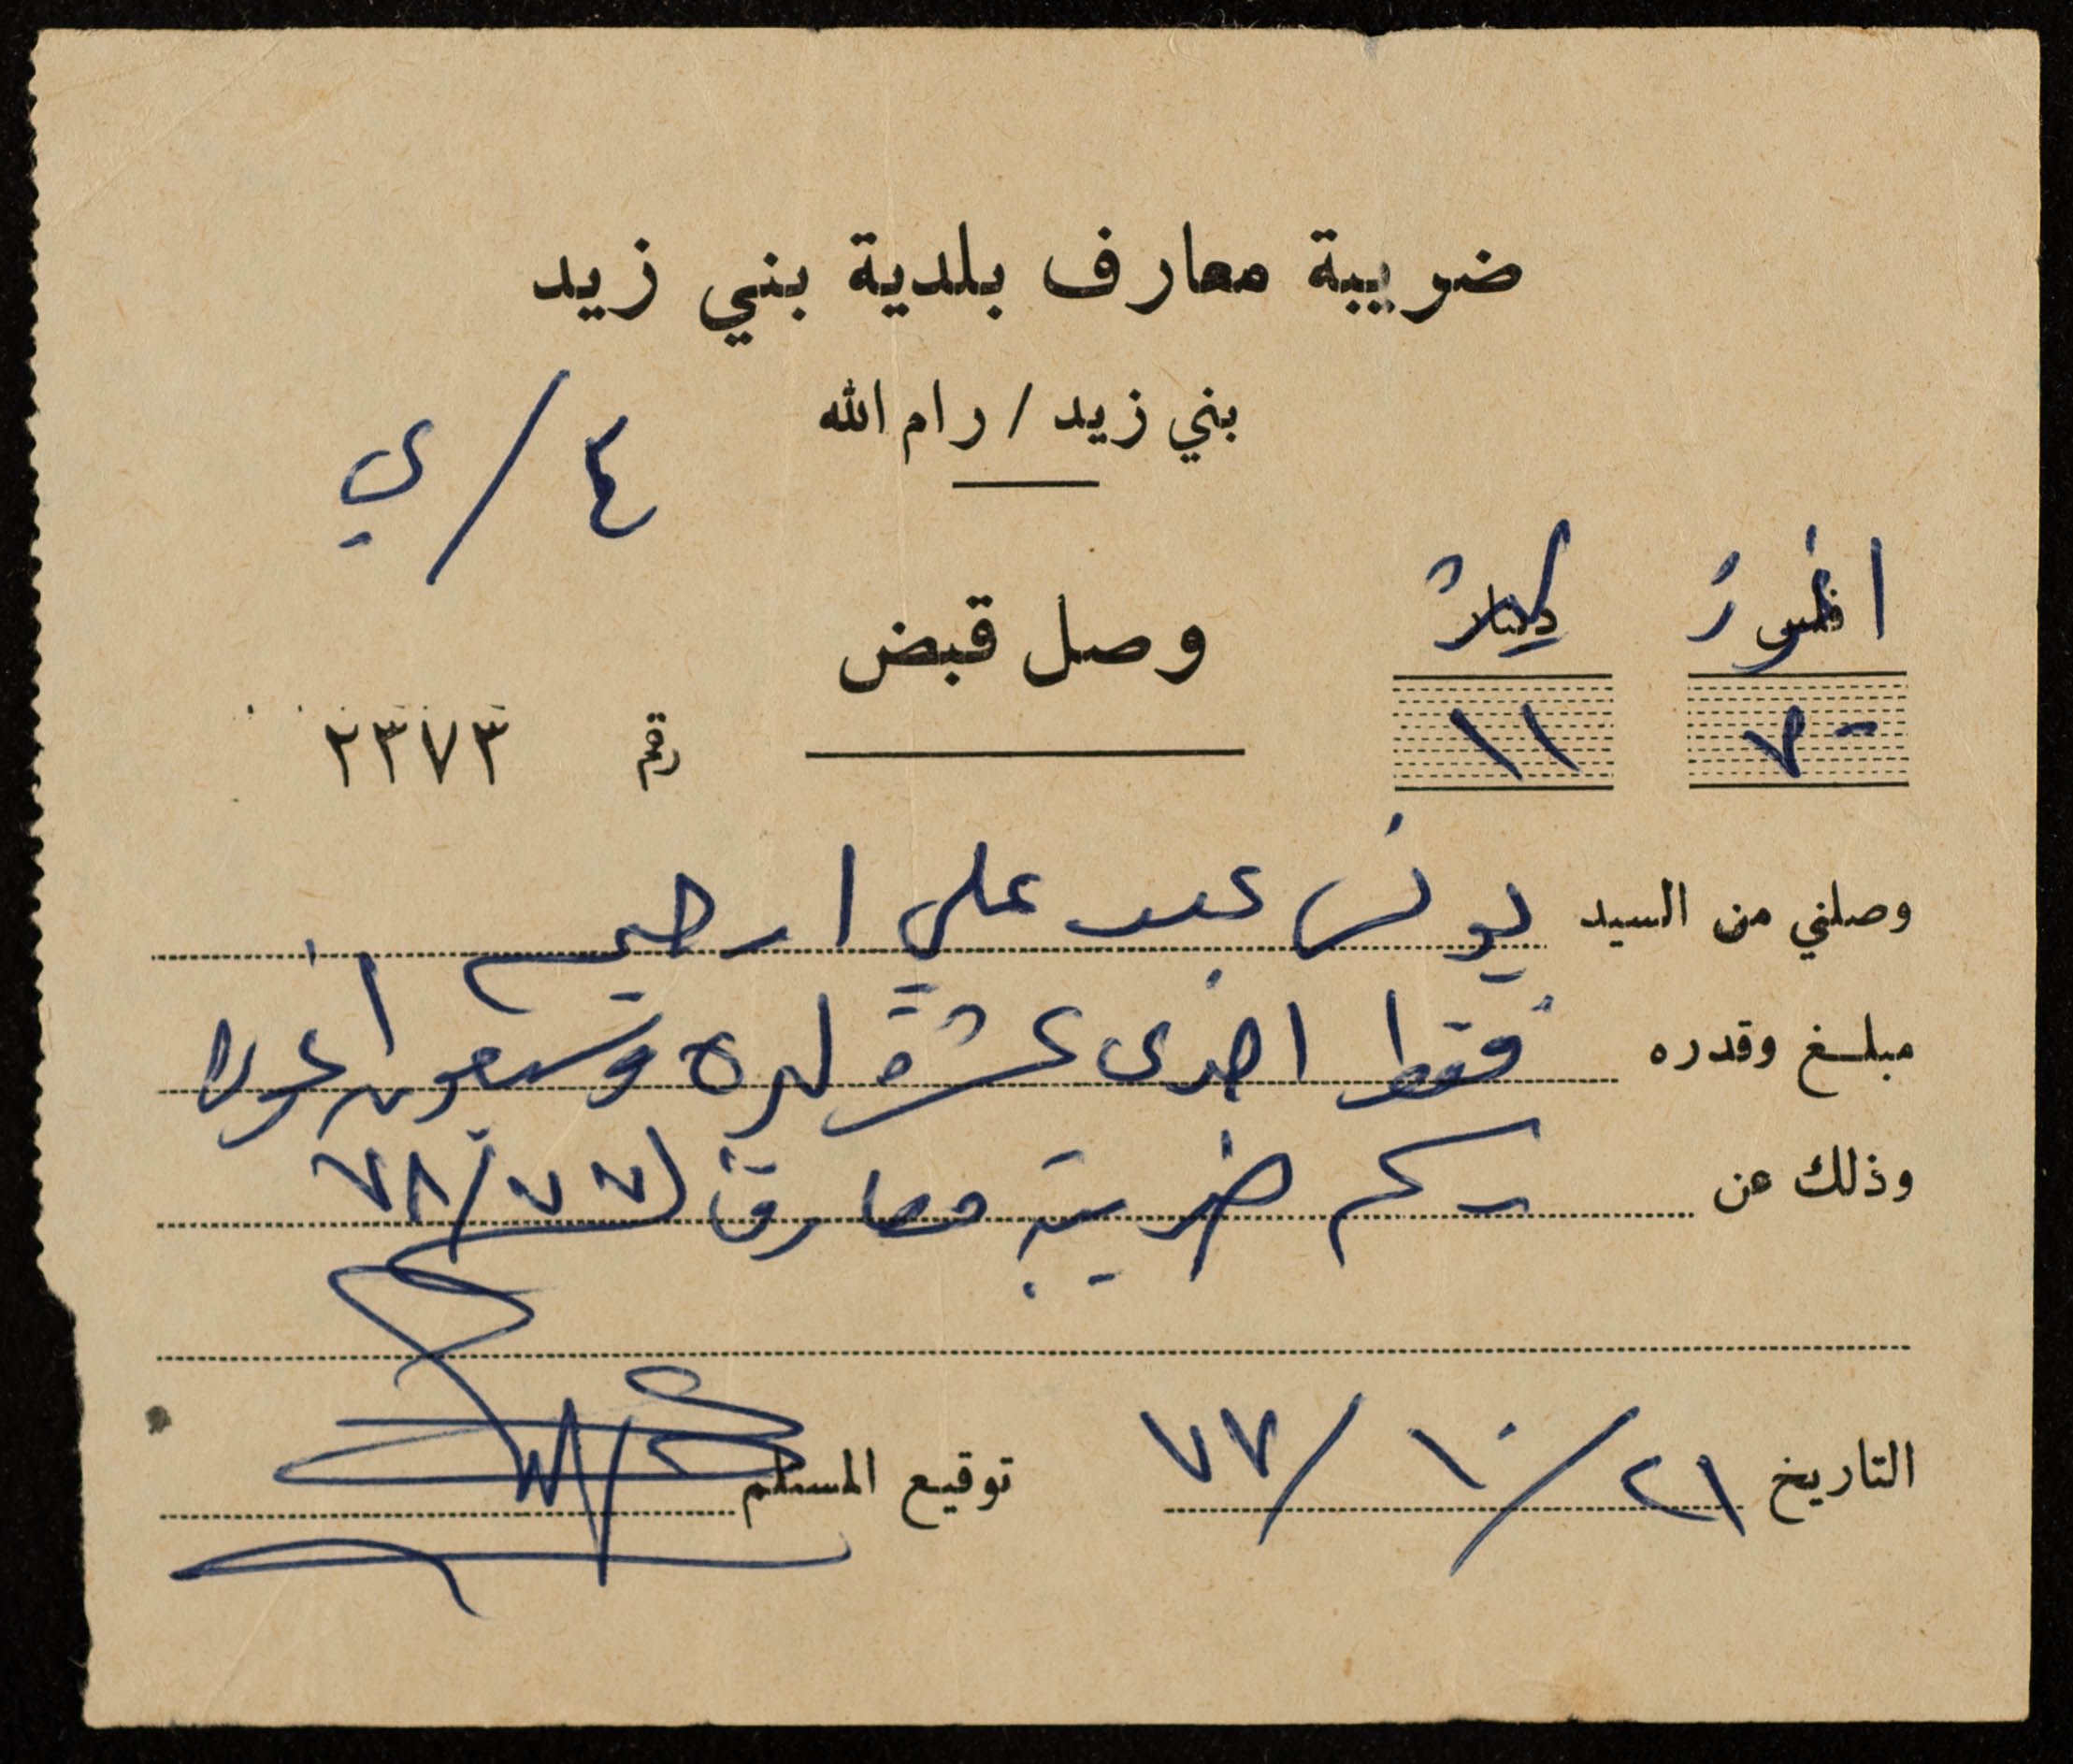 ضريبة معارف بلدية بني زيد
بني زيد / رام الله
٤ / ي
اغورة ليرة
فلس دينار
٧٠ ١١
وصل قبض
رقم ٢٣٧٣
وصلني من السيد يونس عبد علي ارحيم
مبلغ وقدره فقط احدى عشرة ليرة وسبعون اغورة
وذلك عن رسم ضريبة معارف ٧٨/٧٧
التاريخ ٢١ / ١٠ / ٧٧ توقيع المستلم